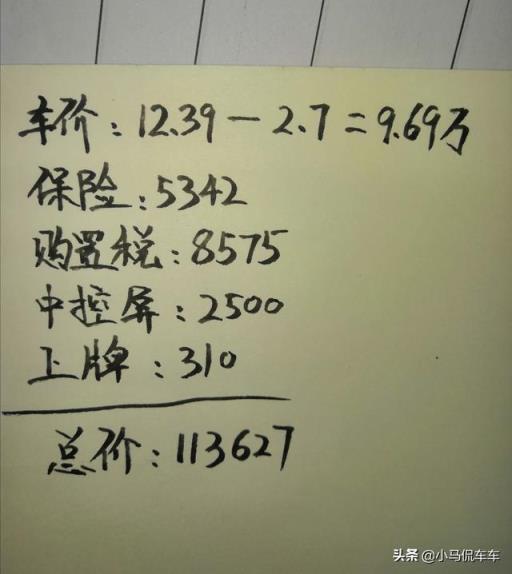 车价：12.39－2.7＝9.69万
保险：5342
购置税：8575
中控屏：2500
上牌：310
总价：113627
头条 @小马侃车车